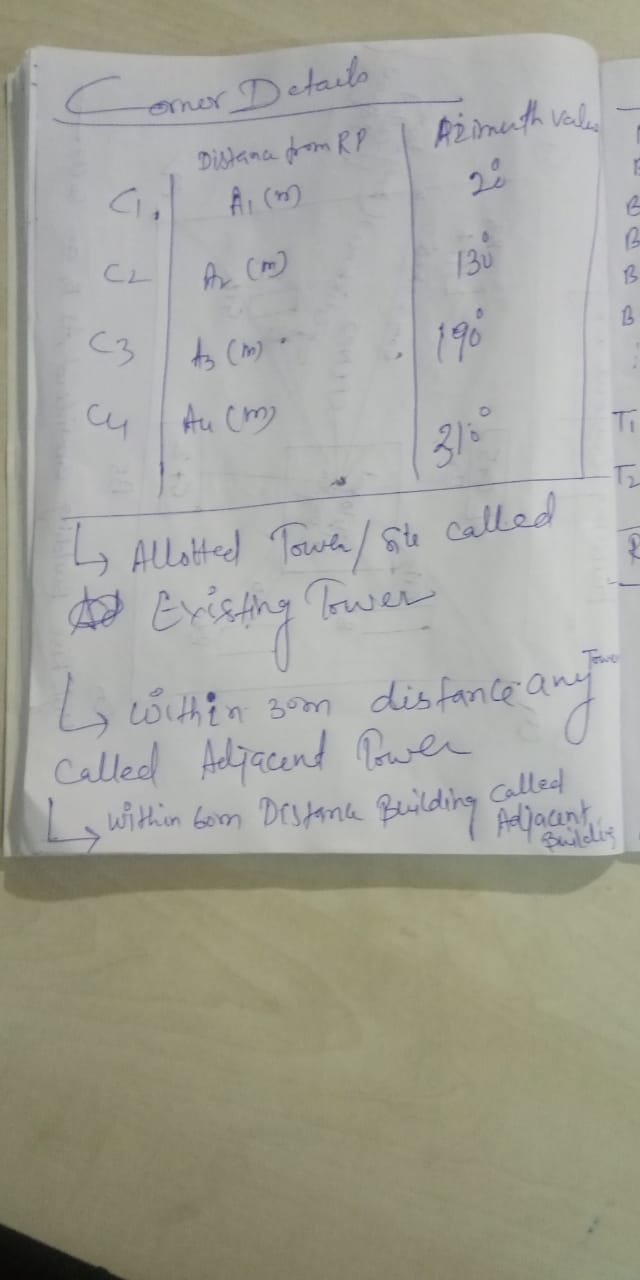 Corner Details
Distance from RP Azimuth value
C1. A1 (m) 20°
C2 A2 (m) 130°
C3 A3 (m) 190°
C4 A4 (m) 310°
↳ Allotted Tower/Site called
Existing Tower
↳ within 30m distance any Tower
called Adjacent Tower
↳ within 60m Distance Building called
Adjacent
Building
B
B
B
B
B
:
T1
T2
R